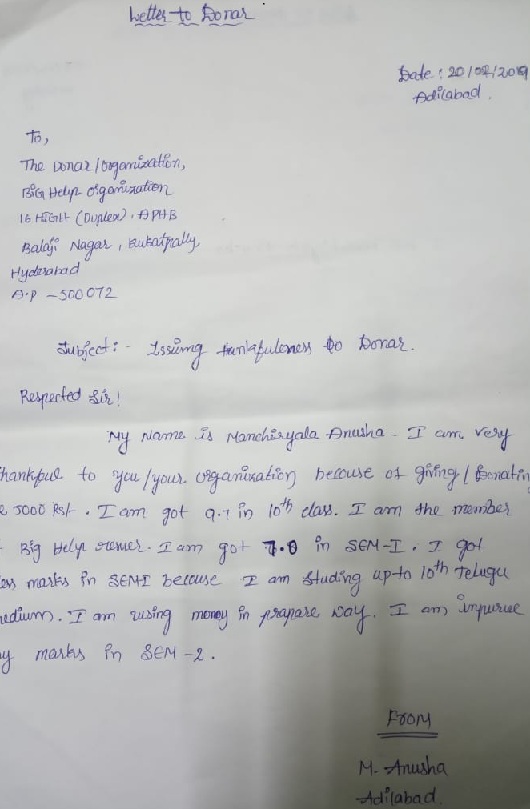 Letter to Donar
Date: 20/02/2019
Adilabad.
To,
The Donar/Organization,
BIG Help Organization
16 HIGH (Duplex). APHB
Balaji Nagar, Kukatpally,
Hyderabad
A.P - 500072
Subject:- Issiung tankfuleness to Donar.
Respected Sir!
My Name is Manchiryala Anusha. I am very
thankful to you/your organization because of giving/Donatin
5000 Rs/. I am got 9.7 in 10th class. I am the member
Big Help . I am got 7.0 in SEM-I. I got
marks in SEM-I because I am studing up to 10th Telugu
medium. I am using money in prapare way. I am impurue
my marks in SEM-2.
From
M. Anusha
Adilabad.